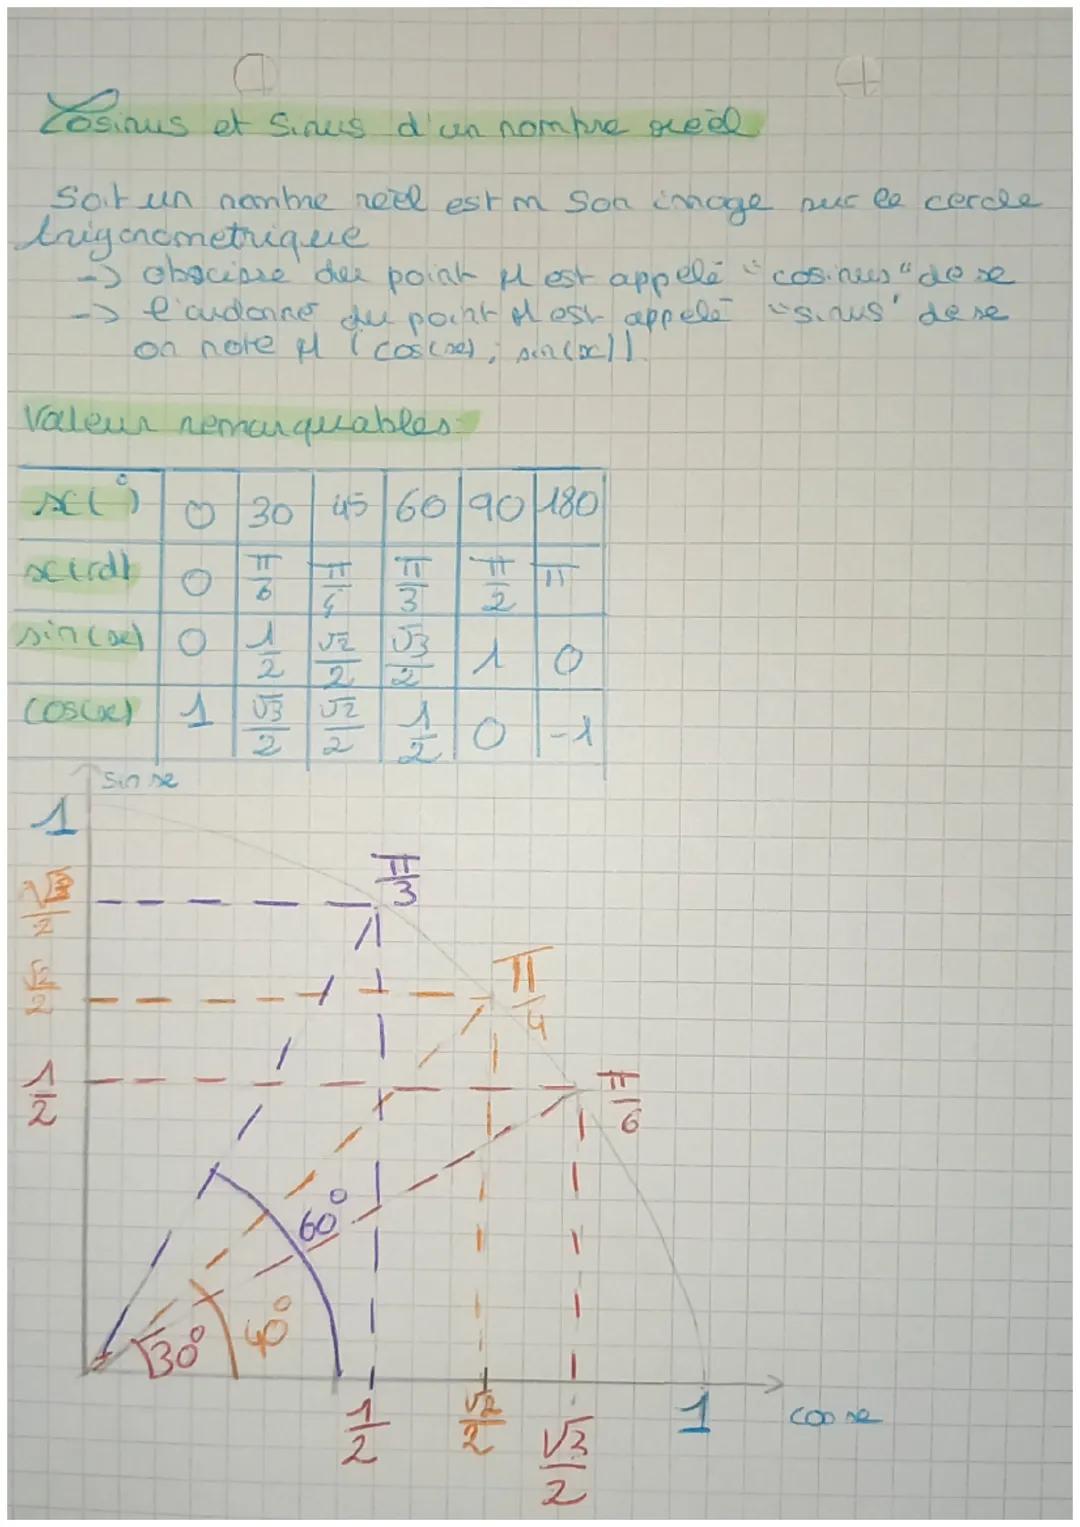 Cosinus et Sinus d'un nombre réel
Soit un nombre réel est m son image sur le cercle
trigonometrique
-> obscisse du point M est appelé "cosinus" de x
-> l'ordonné du point M est appelé "sinus" de x
on note M (cos(x) ; sin(x)).
Valeur remarquables:
x(°) 0 30 45 60 90 180
x(rd) 0 π/6 π/4 π/3 π/2 π
sin(x) 0 1/2 √2/2 √3/2 1 0
cos(x) 1 √3/2 √2/2 1/2 0 -1
sin x
1
π/3
√3/2
π/4
√2/2
π/6
1/2
60°
40°
30°
1/2 √2/2 √3/2 1 cos x